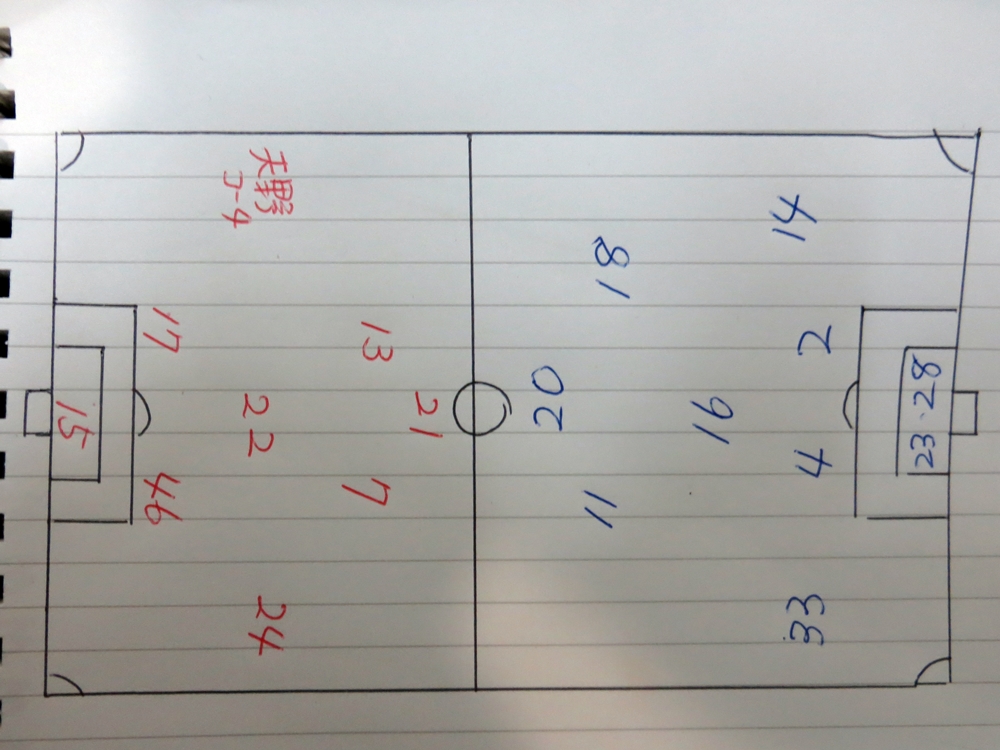 天野
コーチ
17
13
15
22
21
46
7
24
14
18
2
20
16
4
11
33
23・28